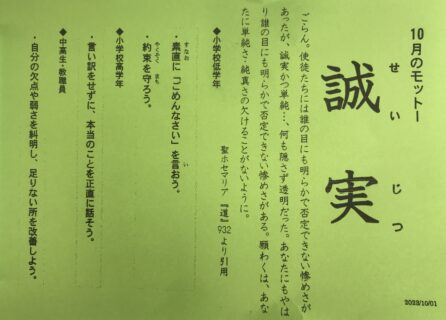 10月のモットー
せいじつ
誠実
ごらん。使徒たちには誰の目にも明らかで否定できない惨めさが
あったが、誠実かつ単純…、何も隠さず透明だった。あなたにもやは
り誰の目にも明らかで否定できない惨めさがある。願わくは、あな
たに単純さ・純真さの欠けることがないように。
聖ホセマリア『道』932より引用
◆小学校低学年
すなお い
・素直に「ごめんなさい」を言おう。
やくそく まも
・約束を守ろう。
◆小学校高学年
・言い訳をせずに、本当のことを正直に話そう。
◆中高生・教職員
・自分の欠点や弱さを糾明し、足りない所を改善しよう。
2023/10/01